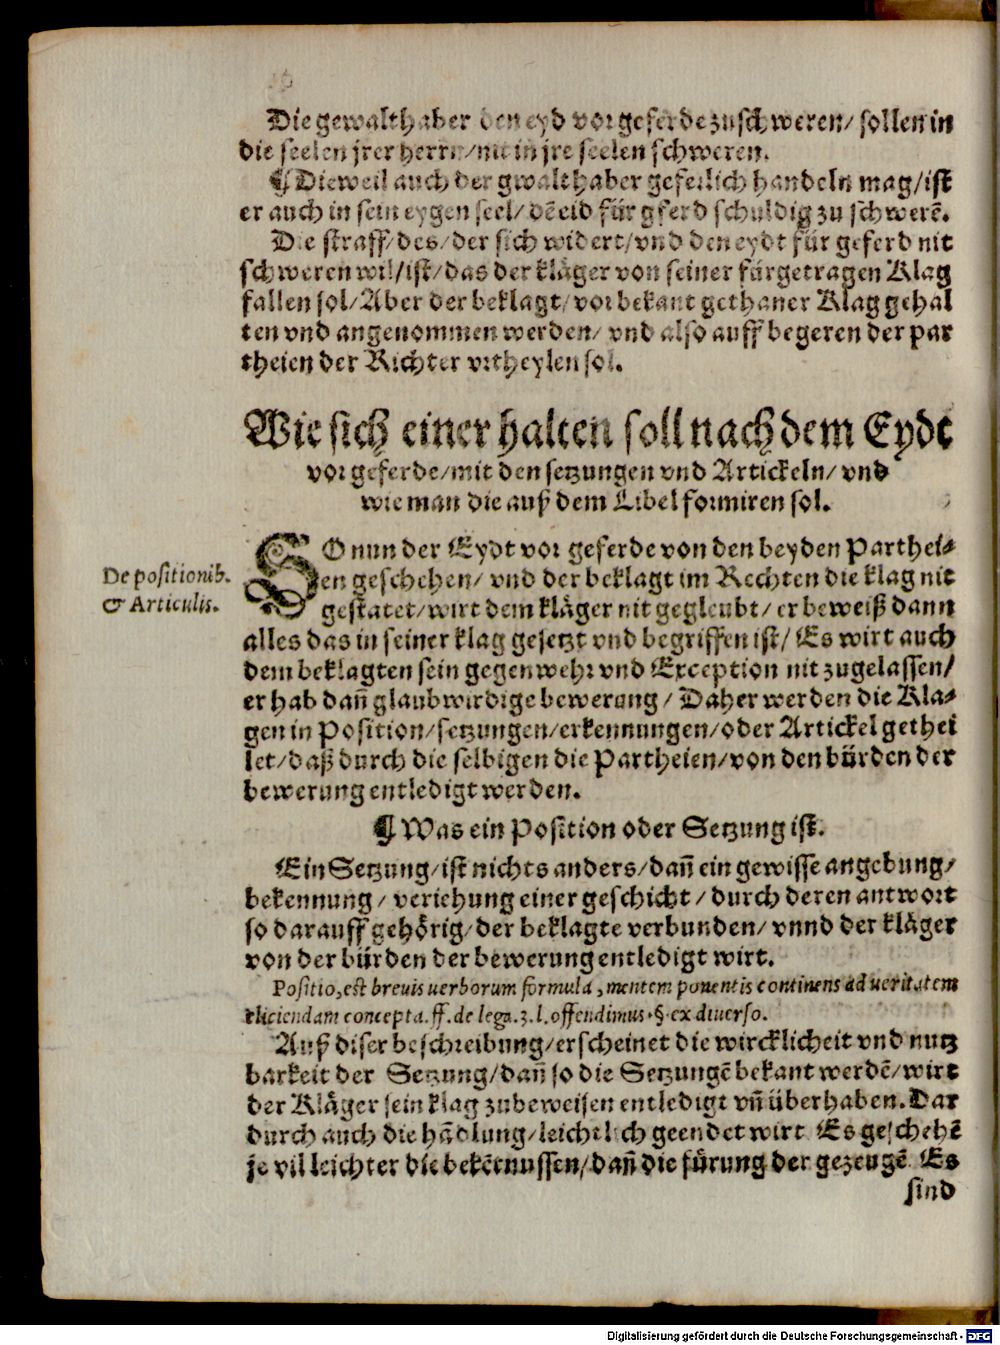 Die gewalthaber den eyd vor geferde zuschweren/ sollen in
die seelen jrer herrn/nit in jre seelen schweren.
¶ Dieweil auch der gwalthaber geferlich handeln mag/ist
er auch in sein eygen seel/ dē eid für gferd schuldig zu schwerē.
Die straff/des/der sich widert/vnd den eydt für geferd nit
schweren wil/ist/das der kläger von seiner fürgetragen Klag
fallen sol/Aber der beklagt/vor bekant gethaner Klag gehal
ten vnd angenommen werden/ vnd also auff begeren der par
theien der Richter vrtheylen sol.
Wie sich einer halten soll nach dem Eydt
vor geferde/mit den setzungen vnd Artickeln/ vnd
wie man die auß dem Libel formiren sol.
SO nun der Eydt vor geferde von den beyden Parthei-
en geschehen/ vnd der beklagt im Rechten die klag nit
gestatet/wirt dem kläger nit gegleubt/ er beweiß dann
alles das in seiner klag gesetzt vnd begriffen ist/ Es wirt auch
dem beklagten sein gegenwehr vnd Exception nit zugelassen/
er hab dañ glaubwirdige bewerung/ Daher werden die Kla-
gen in Position/setzungen/erkennungen/oder Artickel gethei
let/daß durch die selbigen die Partheien/von den bürden der
bewerung entledigt werden.
De positionib.
& Articulis.
¶ Was ein Position oder Setzung ist.
Ein Setzung/ist nichts anders/dañ ein gewisse angebung/
bekennung/ veriehung einer geschicht/ durch deren antwort
so darauff gehörig/der beklagte verbunden/ vnnd der kläger
von der bürden der bewerung entledigt wirt.
Positio, est breuis uerborum formula, mentem ponentis continens ad ueritatem
eliciendam concepta. ff. de lega. 3. l. offendimus. §. ex diuerso.
Auß diser beschreibung/erscheinet die wircklicheit vnd nutz
barkeit der Setzung/dañ so die Setzungē bekant werdē/wirt
der Kläger sein klag zubeweisen entledigt vñ überhaben. Dar
durch auch die hādlung/leichtlich geendet wirt Es geschehē
je vil leichter die bekētnussen/dañ die fürung der gezeugē Es
sind
Digitalisierung gefördert durch die Deutsche Forschungsgemeinschaft - DFG